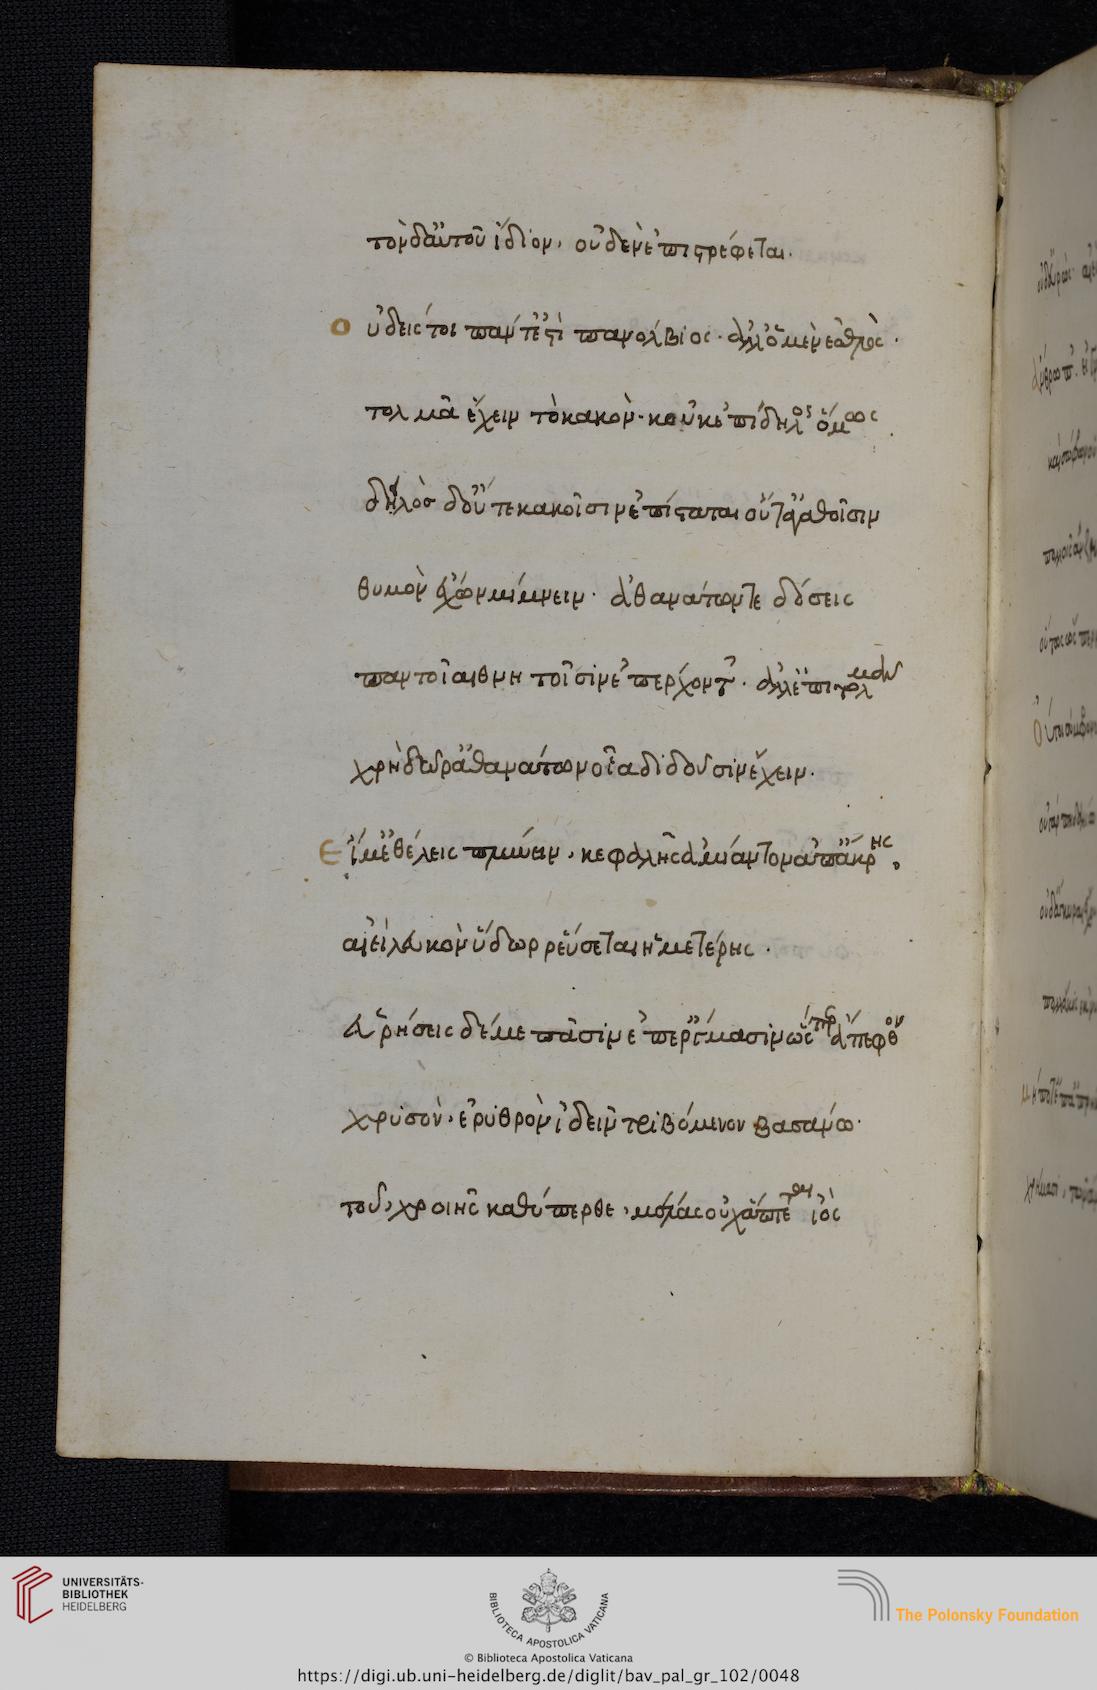 τὸν δ' αὐτοῦ ἴδιον, οὐδεὶν ἐπιστρέφεται.
Οὐδείς τοι πάντ' ἐστὶ πανόλβιος. ἀλλ' ὁ μὲν ἐσθλὸς.
τολμᾶ ἔχειν τὸ κακὸν. κοὐκ ἐπίδηλος ὅμως
δηλὸς δ' οὔτε κακοῖσιν ἐπίσταται οὔτ' ἀγαθοῖσιν
θυμὸν ἔχων μίμνειν. ἀθανάτων τε δόσεις
παντοῖαι θνητοῖσιν ἐπέρχοντ'. ἀλλ' ἐπιτολμᾶν
χρὴ δῶρ' ἀθανάτων οἷα διδοῦσιν ἔχειν.
Εἴ μ' ἐθέλεις πλύνειν, κεφαλῆς ἀμίαντον ἀπ' ἄκρης,
αἰεὶ λευκὸν ὕδωρ ῥεύσεται ἡμετέρης.
εὑρήσεις δέ με πᾶσιν ἐπ' ἔργμασιν ὥσπερ ἄπεφθον
χρυσὸν, ἐρυθρὸν ἰδεῖν τριβόμενον βασάνω.
τοῦ, χροιῆς καθύπερθε, μέλας οὐχ ἅπτεται ἰὸς
UNIVERSITÄTS-
BIBLIOTHEK
HEIDELBERG
BIBLIOTECA APOSTOLICA VATICANA
The Polonsky Foundation
© Biblioteca Apostolica Vaticana
https://digi.ub.uni-heidelberg.de/diglit/bav_pal_gr_102/0048